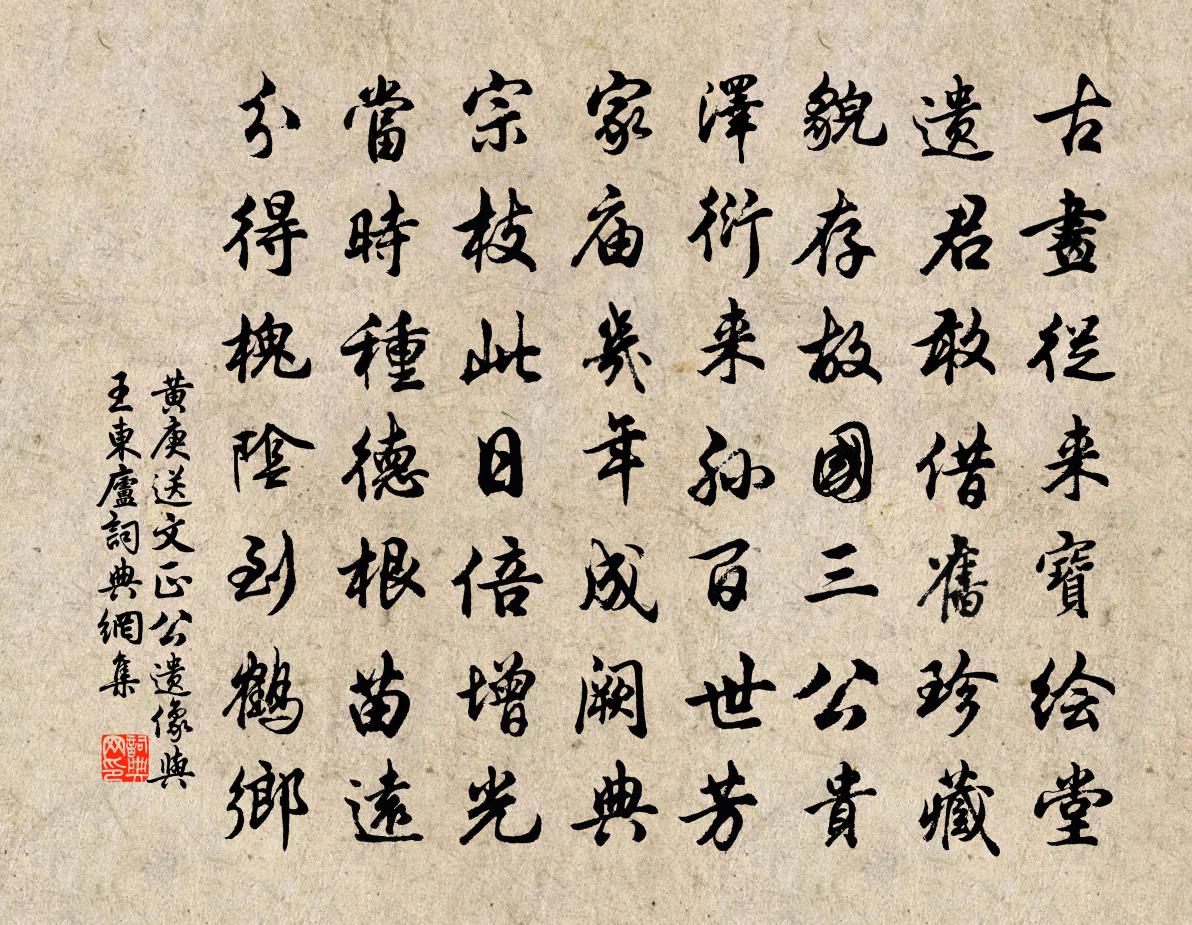 古畫從来寶绘堂
遗君敢借舊珍藏
貌存故國三公貴
澤衍来孙百世芳
家庙幾年成阙典
宗枝此日倍增光
當時種德根苗遠
分得槐陰到鶴鄉
黄庚送文正公遗像與
王東廬詞典網集
詞典网印